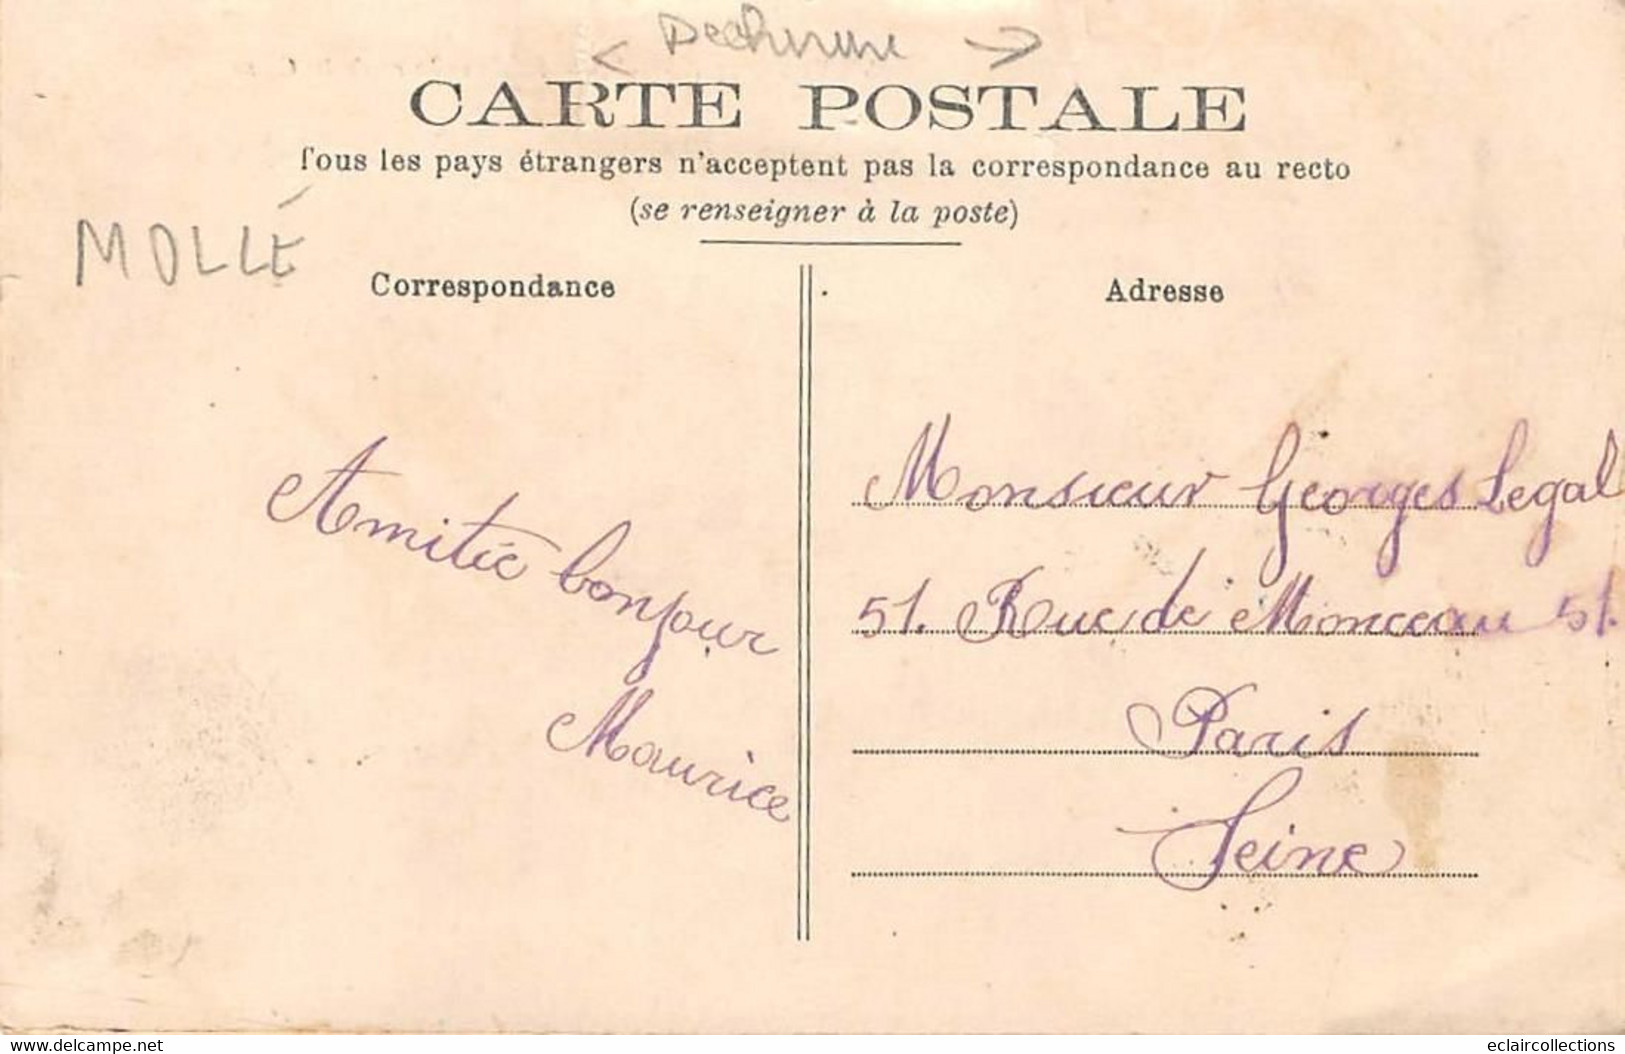 Dechirure
CARTE POSTALE
Tous les pays étrangers n'acceptent pas la correspondance au recto
(se renseigner à la poste)
MOLLÉ
Correspondance
Amitié bonjour
Maurice
Adresse
Monsieur Georges Legal
51. Rue de Monceau 51.
Paris
Seine
www.delcampe.net
eclaircollections